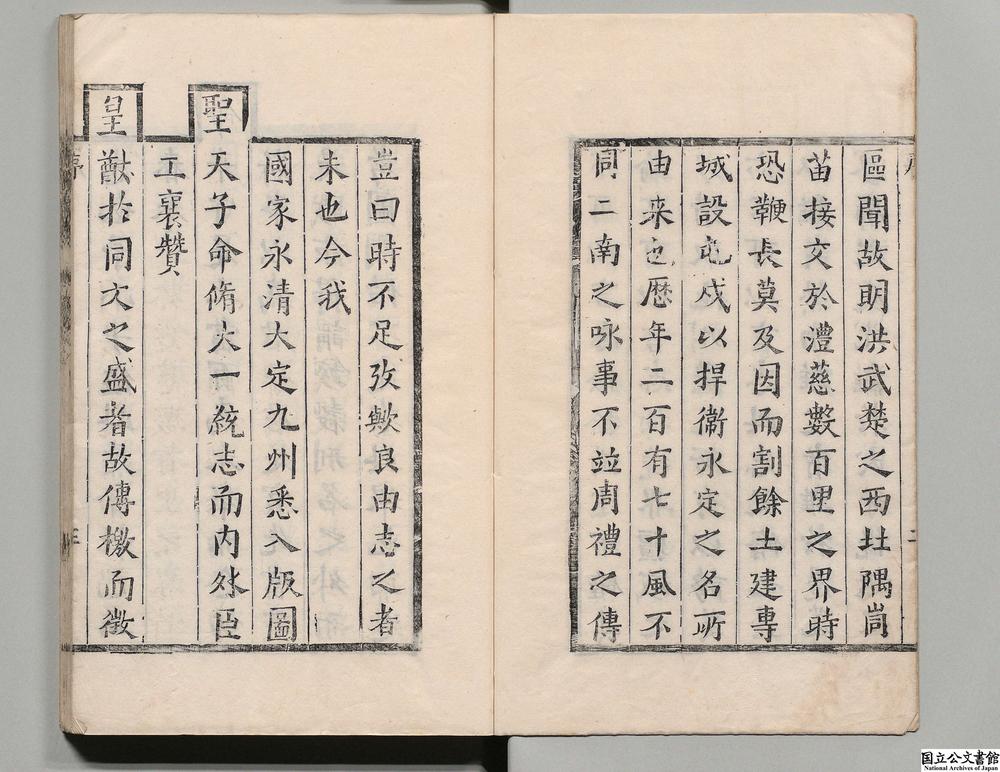 區聞故明洪武楚之西壮隅峝
苗接交於澧慈數百里之界時
恐鞭長莫及因而割餘土建專
城設屯戍以捍衞永定之名所
由来也歷年二百有七十風不
同二南之咏事不並周禮之傳
豈曰時不足攷歟良由志之者
未也今我
國家永清大定九州悉入版圖
聖天子命脩大一統志而内外臣
工襄贊
皇猷扵同文之盛者故傳檄而徵
序
三
国立公文書館
National Archives of Japan